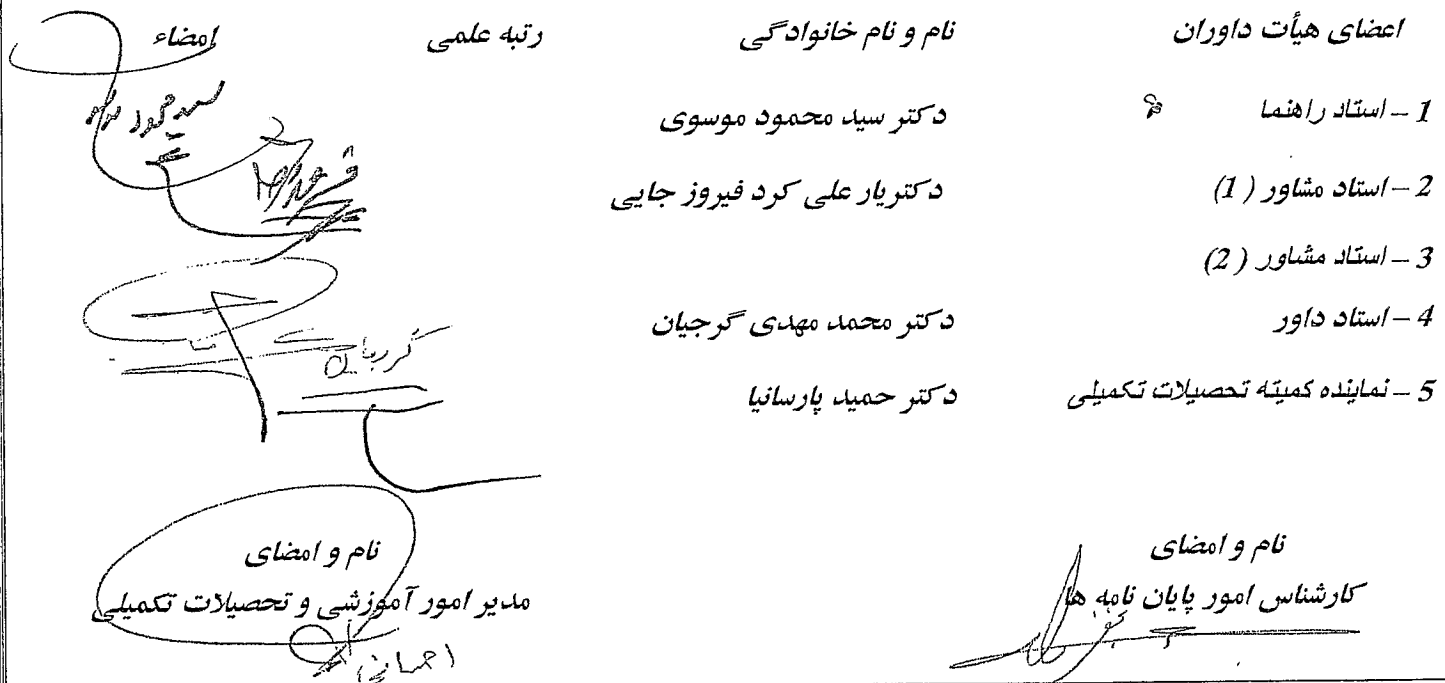 اعضای هیأت داوران نام و نام خانوادگی رتبه علمی امضاء
1 – استاد راهنما دکتر سید محمود موسوی
سید محمود
2 – استاد مشاور ( 1 ) دکتریار علی کرد فیروز جایی
3 – استاد مشاور ( 2 )
4 – استاد داور دکتر محمد مهدی گرجیان
5 – نماینده کمیته تحصیلات تکمیلی دکتر حمید پارسانیا
نام و امضای نام و امضای
کارشناس امور پایان نامه ها مدیر امور آموزشی و تحصیلات تکمیلی